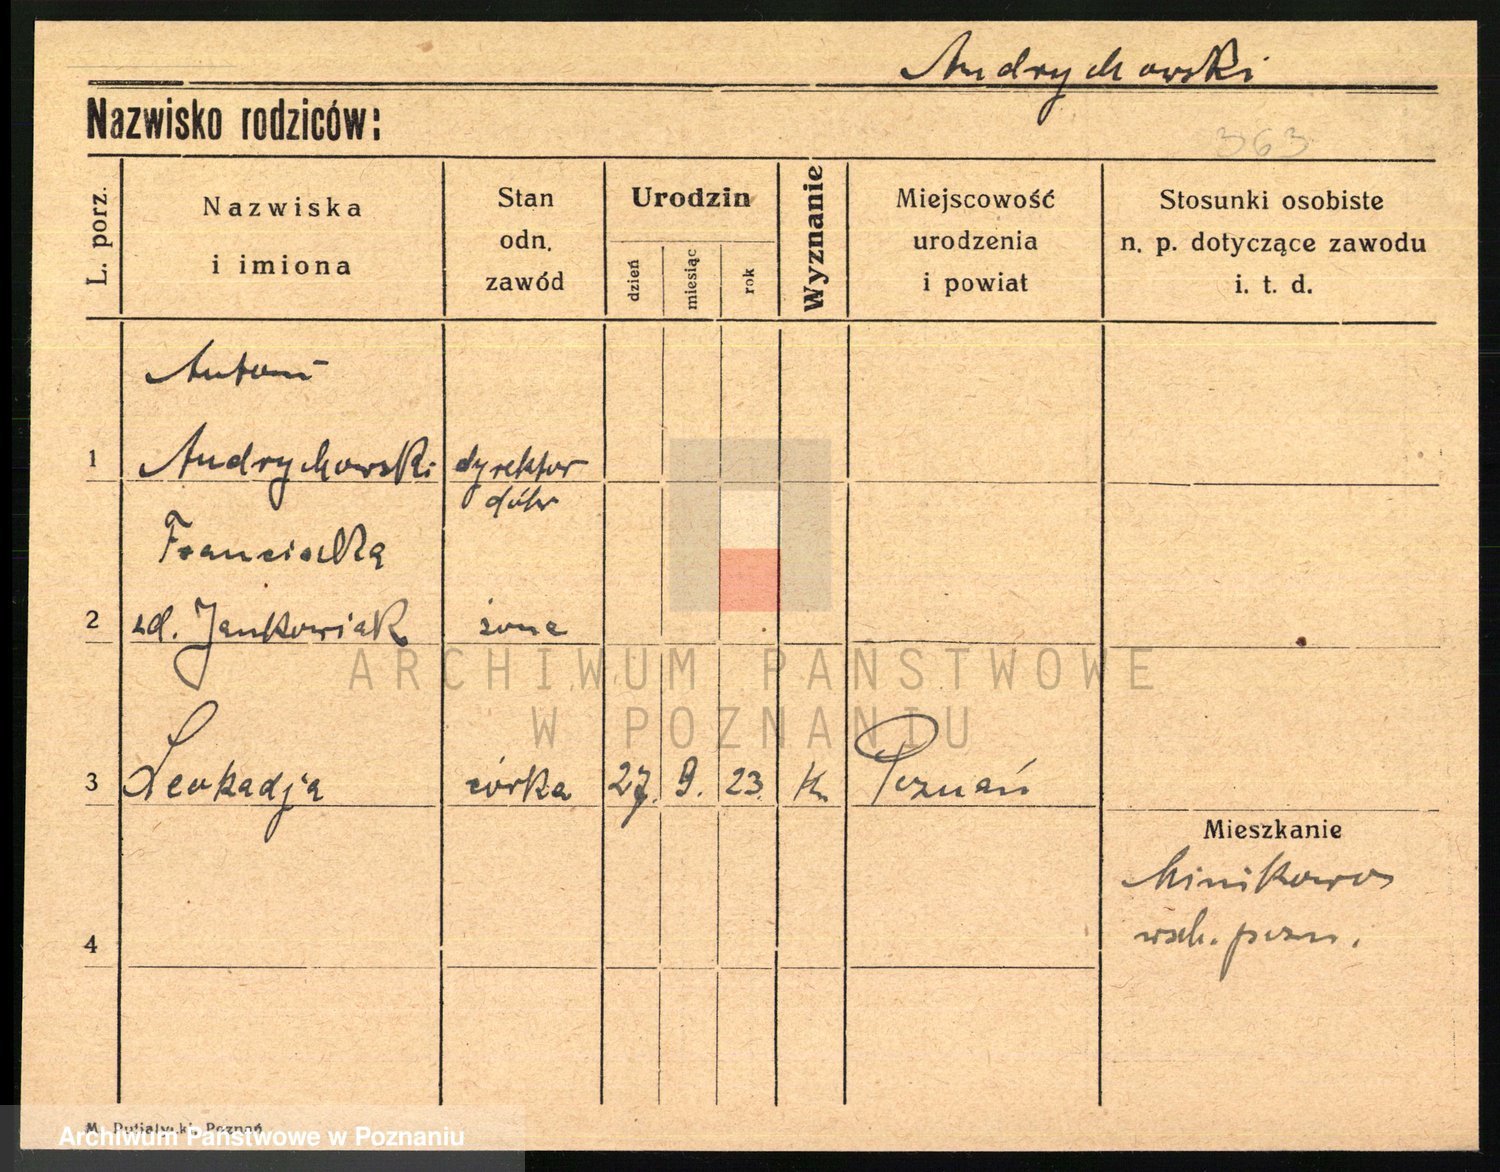 Andrychowski
Nazwisko rodziców:
363
L. porz.
Nazwiska
i imiona
Stan
odn.
zawód
Urodzin
dzień
miesiąc
rok
Wyznanie
Miejscowość
urodzenia
i powiat
Stosunki osobiste
n. p. dotyczące zawodu
i. t. d.
Antoni
1 Andrychowski dyrektor
dóbr
Franciszka
2 zd. Jankowiak żona
3 Leokadja córka 27. 9. 23. k. Poznań
Mieszkanie
Minikowo
wsch. pozn.
4
ARCHIWUM PAŃSTWOWE
W POZNANIU
Poznań
Archiwum Państwowe w Poznaniu